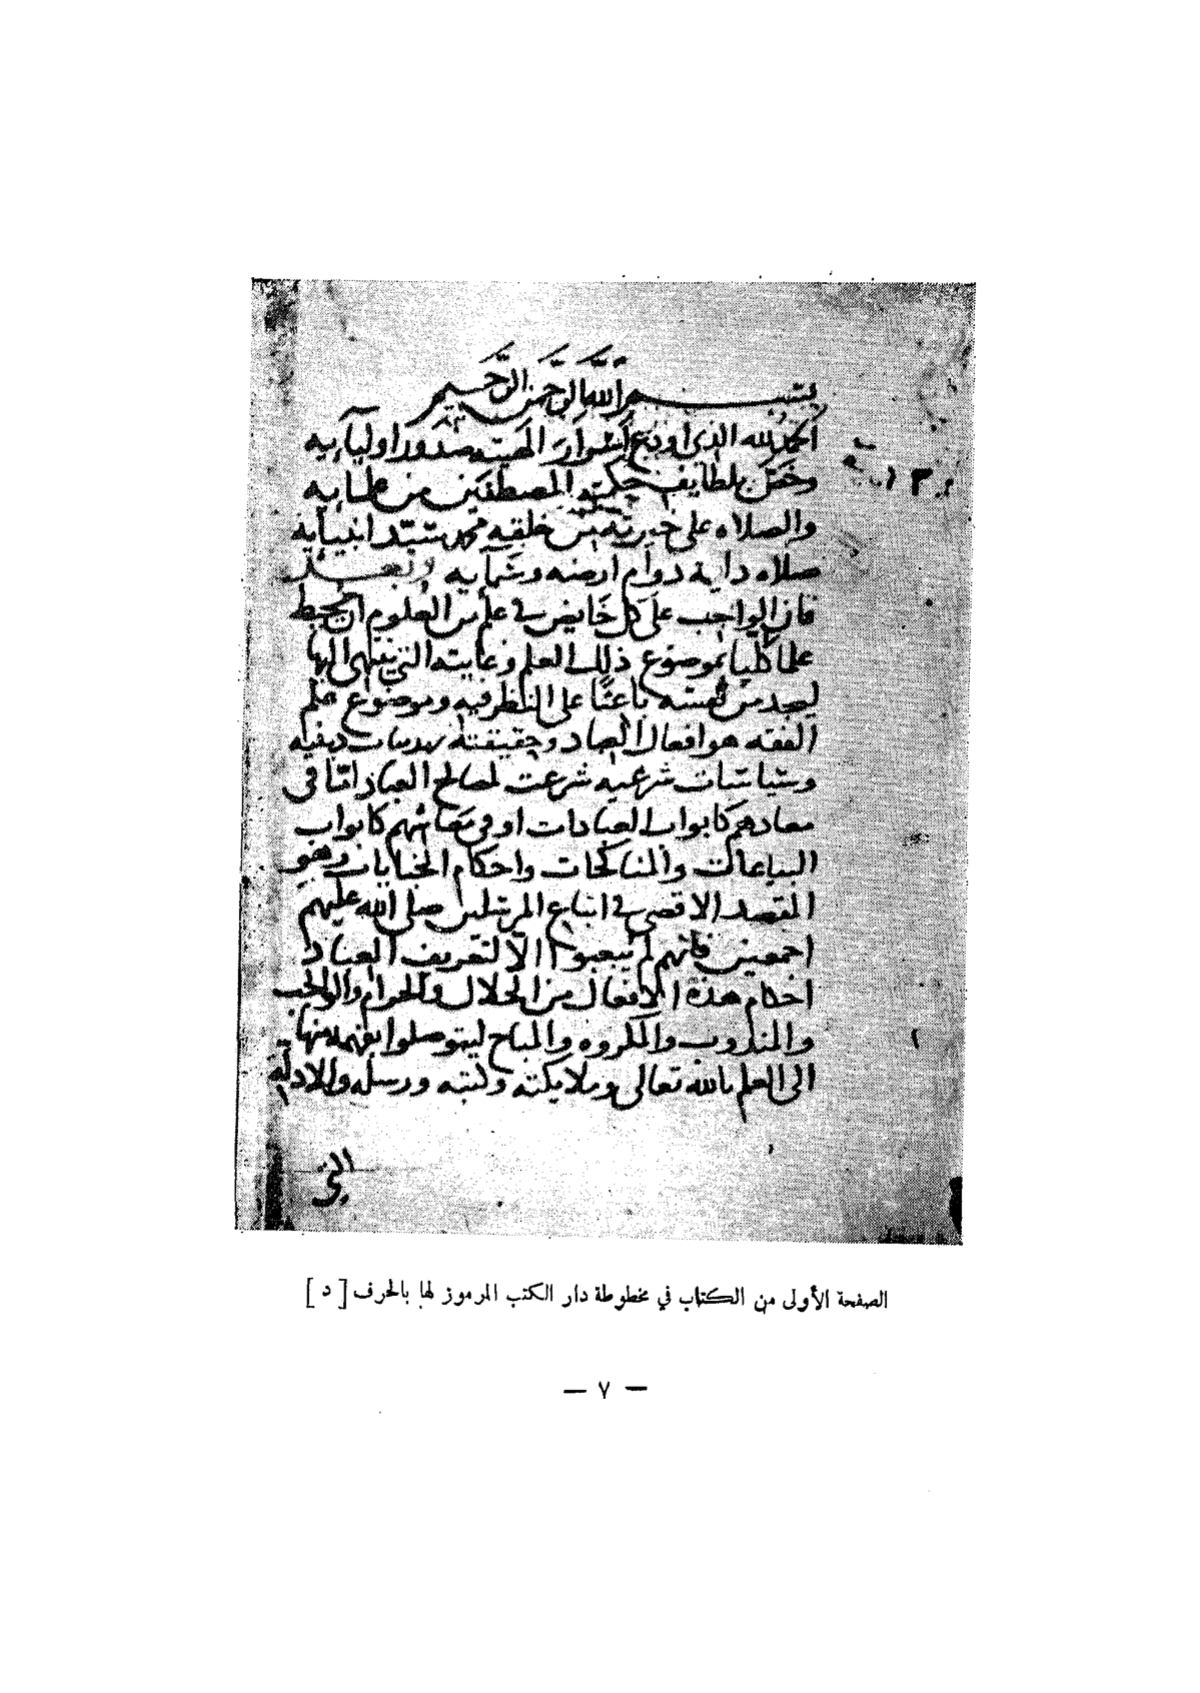 بسم الله الرحمن الرحيم
الحمد لله الذى اودع اسرار الهيته صدور اوليآيه
وخص بلطايف حكمته المصطفين من علمايه
والصلاه على خيرته من خلقه محمد سيد انبيايه
صلاه دايمة دوام ارضه وسمآيه وبعد
فان الواجب على كل خايض فى علم من العلوم ان يحيط
علما كليا بموضوع ذلك العلم وغايته التى ينتهى اليها
ليجد من نفسه باعثا على النظر فيه وموضوع علم
الفقه هو افعال العباد وحقيقته تهذيبات دينيه
وسياسات شرعيه شرعت لمصالح العباد اما فى
معادهم كابواب العبادات او فى معاشهم كابواب
البياعات والمناكحات واحكام الجنايات وهو
المقصد الاقصى فى اتباع المرسلين صلى الله عليهم
اجمعين فانهم لم يبعثوا الا لتعريف العباد
احكام هذه الافعال من الحلال والحرام والواجب
والمندوب والمكروه والمباح ليتوصلوا بفهم منها
الى العلم بالله تعالى وملايكته وكتبه ورسله والادلة
التى
الصفحة الأولى من الكتاب في مخطوطة دار الكتب المرموز لها بالحرف [ د ]
— ٧ —